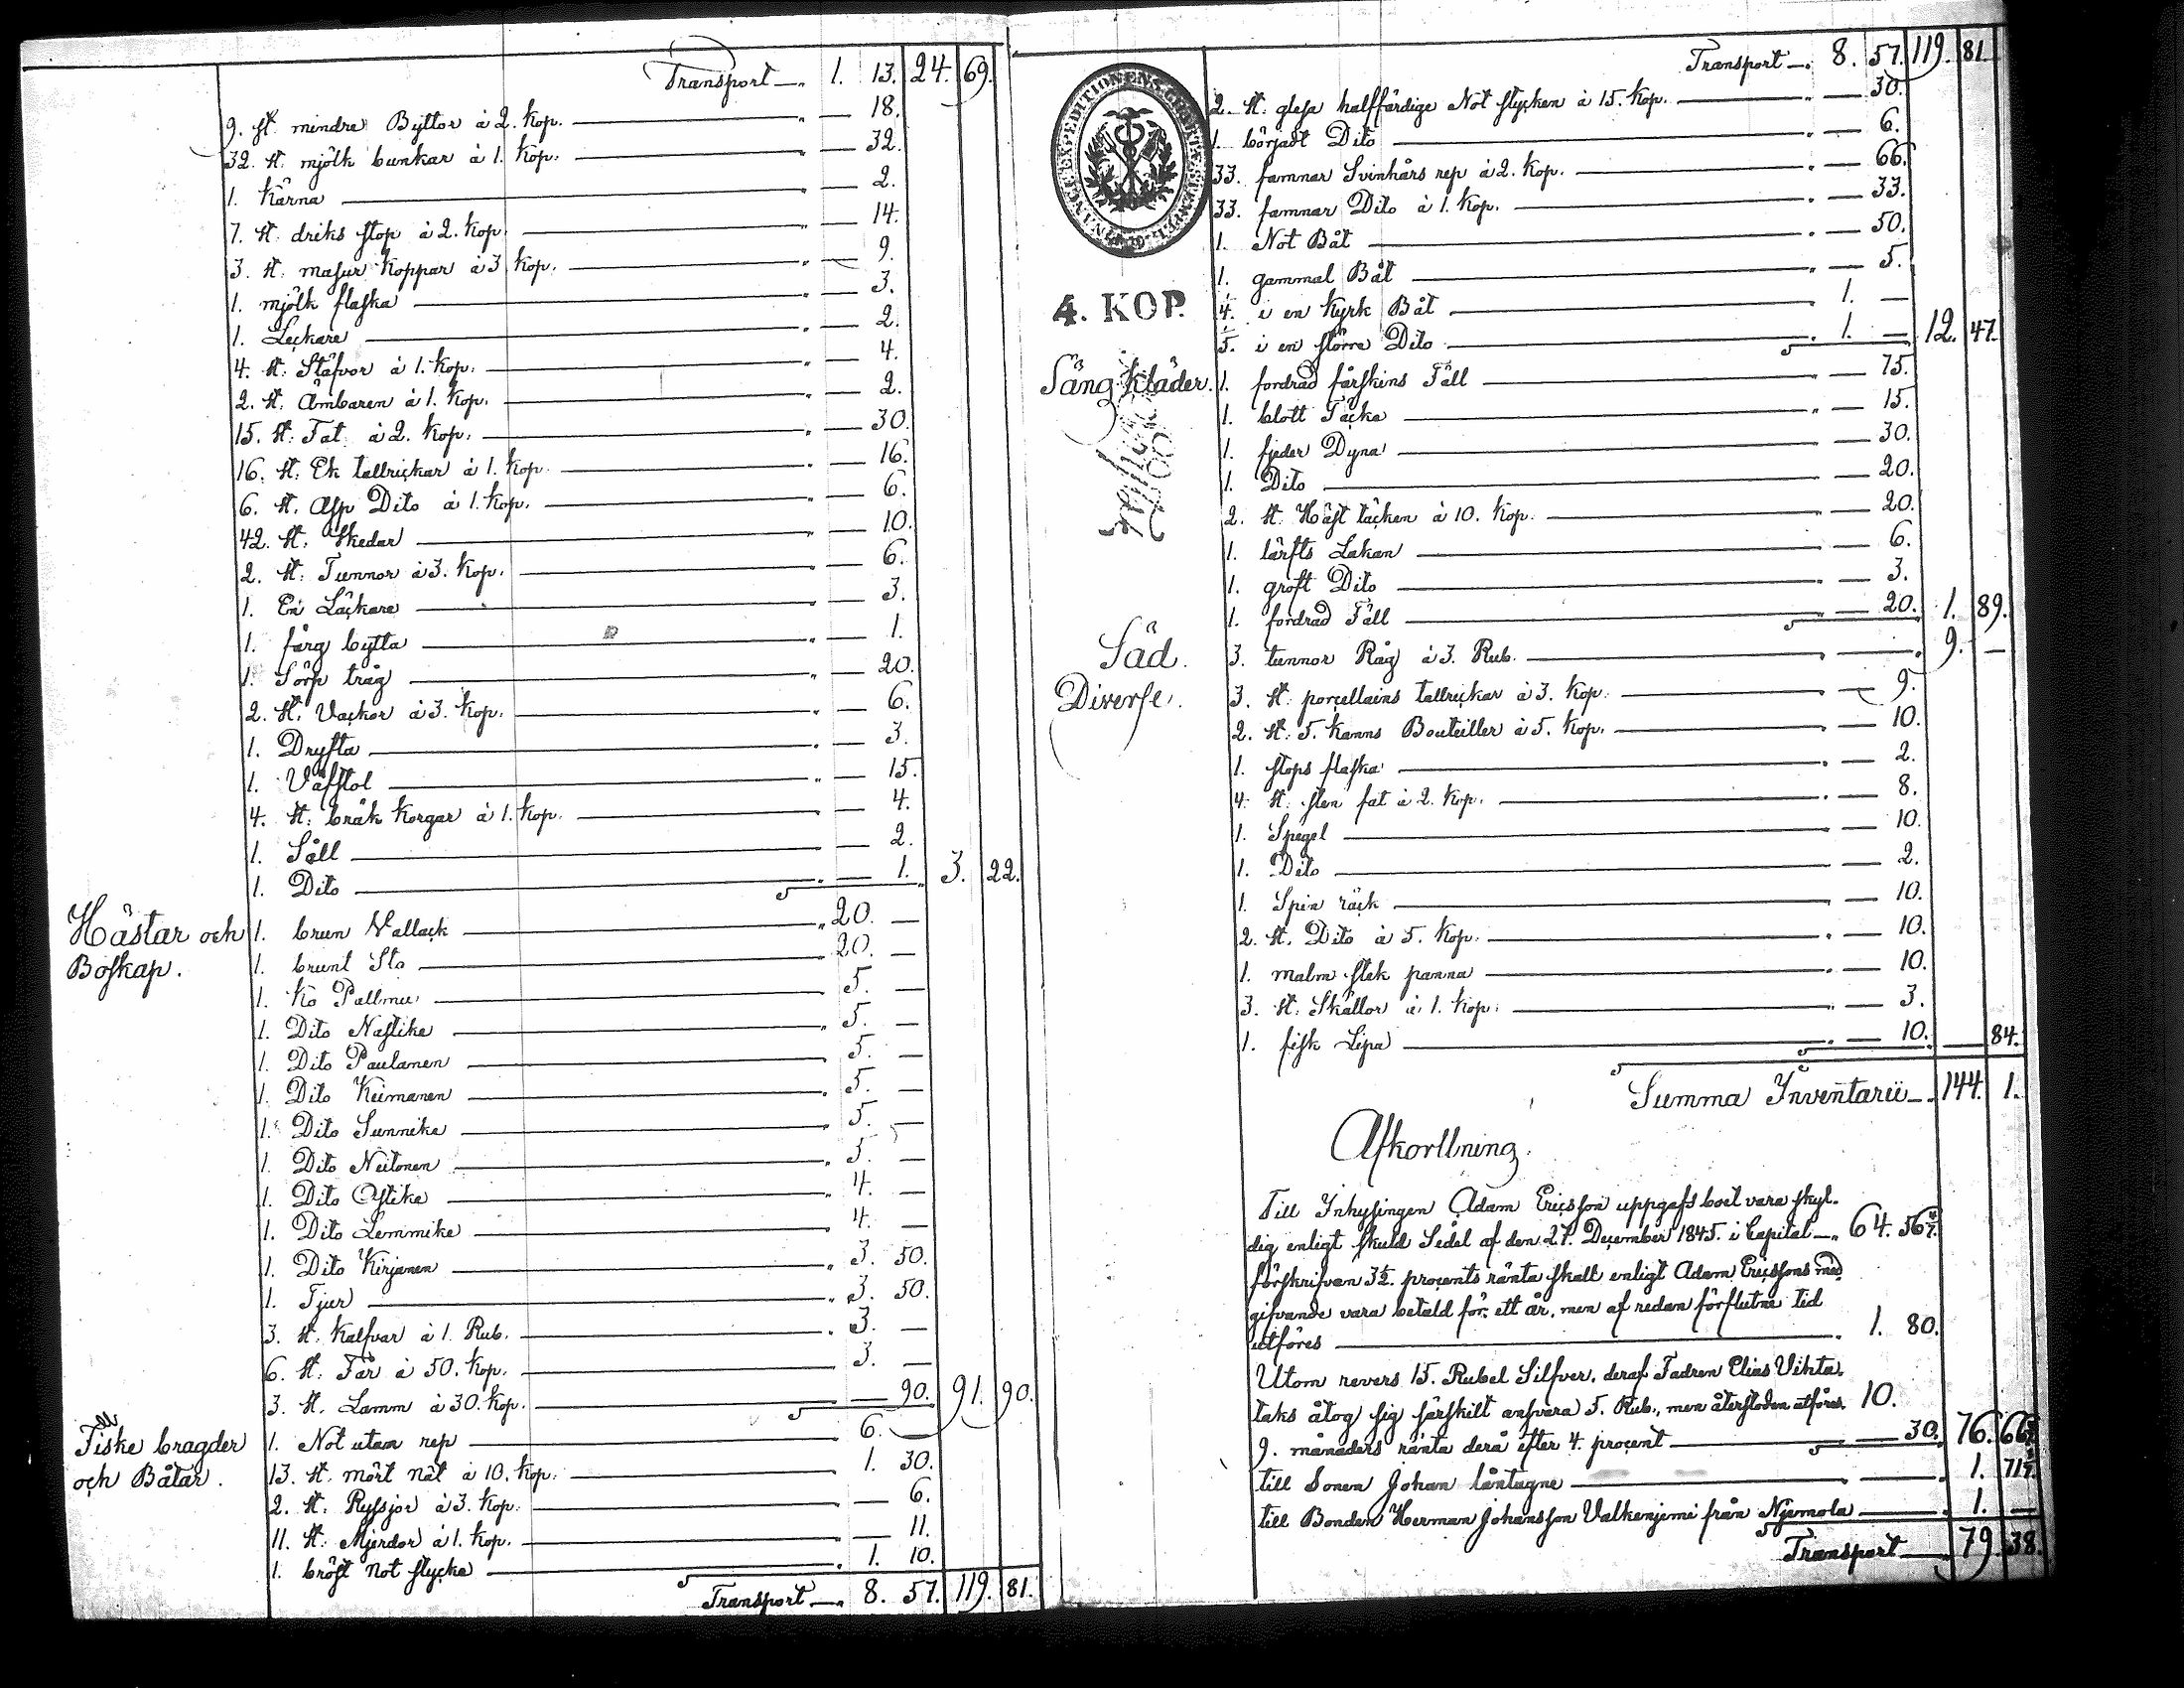 Transport — 1. 13. 24. 69.
9. st. mindre Byttor à 2. Kop. — 18.
32. st. mjölk bunkar à 1. Kop. — 32.
1. Kärna — 2.
7. st. driks stop à 2. Kop. — 14.
3. st. masur Koppar à 3 Kop. — 9.
1. mjölk flaska — 3.
1. Leckare — 2.
4. st. Stäfvor à 1. Kop. — 4.
2. st. Ämbaren à 1. Kop. — 2.
15. st. Fat à 2. Kop. — 30.
16. st. Ek tallrickar à 1. Kop. — 16.
6. st. Asp Dito à 1. Kop. — 6.
42. st. Skedar — 10.
2. st. Tunnor à 3. Kop. — 6.
1. En Läckare — 3.
1. färg bytta — 1.
1. Sörp tråg — 20.
2. st. Vackor à 3. Kop. — 6.
1. Dryfta — 3.
1. Väfstol — 15.
4. st. bråk Korgar à 1. Kop. — 4.
1. Såll — 2.
1. Dito — 1. 3. 22.
Hästar och Boskap.
1. brun Vallack — 20. —
1. brunt Sto — 20. —
1. Ko Pallmu — 5. —
1. Dito Nastike — 5. —
1. Dito Paulanen — 5. —
1. Dito Keimanen — 5. —
1. Dito Sunnike — 5. —
1. Dito Neitonen — 5. —
1. Dito Ostike — 4. —
1. Dito Lemmike — 4. —
1. Dito Kirjanen — 3. 50.
1. Tjur — 3. 50.
3. st. Kalfvar à 1. Rub. — 3. —
6. st. Får à 50. Kop. — 3. —
3. st. Lamm à 30. Kop. — 90. 91. 90.
Fiske bragder och Båtar.
1. Not utan rep — 6. —
13. st. mört nät à 10. Kop. — 1. 30.
2. st. Ryssjor à 3. Kop. — 6.
11. st. Mjerdor à 1. Kop. — 11.
1. bröst not stycke — 1. 10.
Transport — 8. 57. 119. 81.
Transport — 8. 57. 119. 81.
4. KOP.
2. st. glesa halffärdige Not stycken à 15. Kop. — 30.
1. börjadt Dito — 6.
33. famnar Svinhårs rep à 2. Kop. — 66.
33. famnar Dito à 1. Kop. — 33.
1. Not Båt — 50.
1. gammal Båt — 5.
1/4. i en Kyrk Båt — 1. —
1/5. i en större Dito — 1. — 12. 47.
Säng Kläder.
1. fordrad fårskins Fäll — 75.
1. blott Täcke — 15.
1. fjeder Dyna — 30.
1. Dito — 20.
2. st. Häst täcken à 10. Kop. — 20.
1. lärfts Lakan — 6.
1. groft Dito — 3.
1. fordrad Fäll — 20. 1. 89.
Säd.
3. tunnor Råg à 3. Rub. — 9. —
Diverse.
3. st. porcellains tallrickar à 3. Kop. — 9.
2. st. 5. Kanns Bouteiller à 5. Kop. — 10.
1. stops flaska — 2.
4. st. sten fat à 2. Kop. — 8.
1. Spegel — 10.
1. Dito — 2.
1. Spin räck — 10.
2. st. Dito à 5. Kop. — 10.
1. malm stek panna — 10.
3. st. Skällor à 1. Kop. — 3.
1. fisk Lipa — 10. — 84.
Summa Inventarii — 144. 1.
Afkortning.
Till Inhysingen Adam Ericsson uppgafs boet vara skyl-
dig enligt skuld Sedel af den 27. December 1845. i Capital — 64. 56 4/7.
förskrifven 3½. procents ränta skall enligt Adam Ericssons med
gifvande vara betald för ett år, men af redan förflutne tid
utföres — 1. 80.
Utom revers 15. Rubel Silfver, deraf Fadren Elias Vihta-
taks åtog sig särskilt ansvara 5. Rub., men återstoden utföres 10.
9. månaders ränta derå efter 4. procent — 30. 76. 66
till Sonen Johan låntagne — 1. 71
till Bonden Herman Johansson Valkenjemi från Njemola — 1. —
Transport — 79. 38.